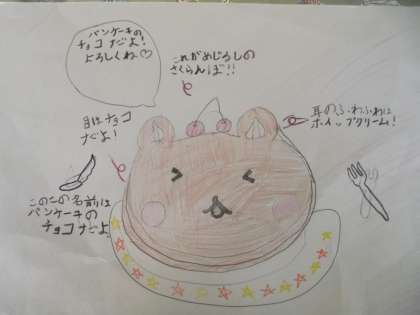 パンケーキの
チョコだよ!
よろしくね♡
これがめじるしの
さくらんぼ!!
耳のふわふわは
ホイップクリーム!
目はチョコ
だよ!
このこの名前は
パンケーキの
チョコだよ